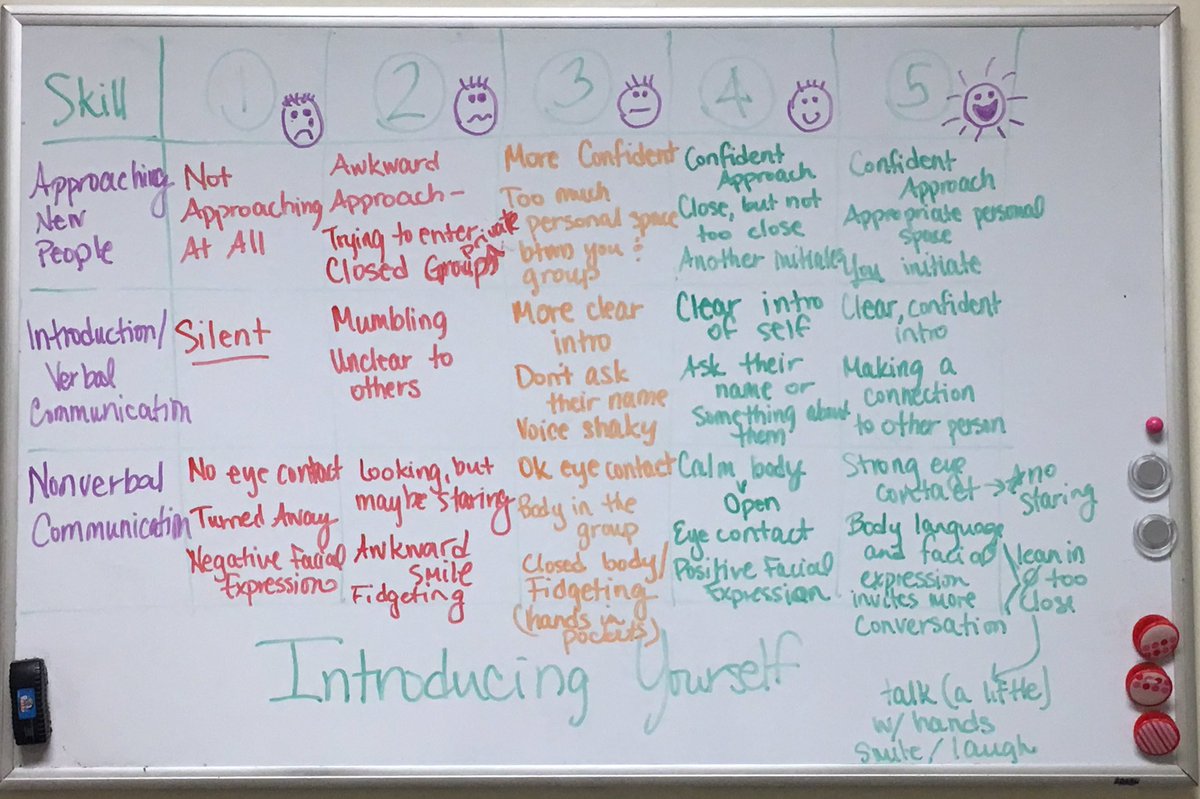 Skill
1
2
3
4
5
Approaching
New
People
Not
Approaching
At All
Awkward
Approach-
Trying to enter private
Closed Groups
More Confident
Too much
personal space
btwn you &
group
Confident
Approach
Close, but not
too close
Another initiates
Confident
Approach
Appropriate personal
space
You initiate
Introduction/
Verbal
Communication
Silent
Mumbling
Unclear to
others
More clear
intro
Don't ask
their name
Voice shaky
Clear intro
of self
Ask their
name or
Something about
them
Clear, confident
intro
Making a
connection
to other person
Nonverbal
Communication
No eye contact
Turned Away
Negative Facial
Expression
Looking, but
maybe staring
Awkward
smile
Fidgeting
Ok eye contact
Body in the
group
Closed body/
Fidgeting
(hands in
pockets)
Calm body
Open
Eye contact
Positive Facial
Expression
Strong eye
contact → no
staring
Body language
and facial
expression
invites more
conversation
lean in
too
close
talk (a little)
w/ hands
smile/laugh
Introducing Yourself